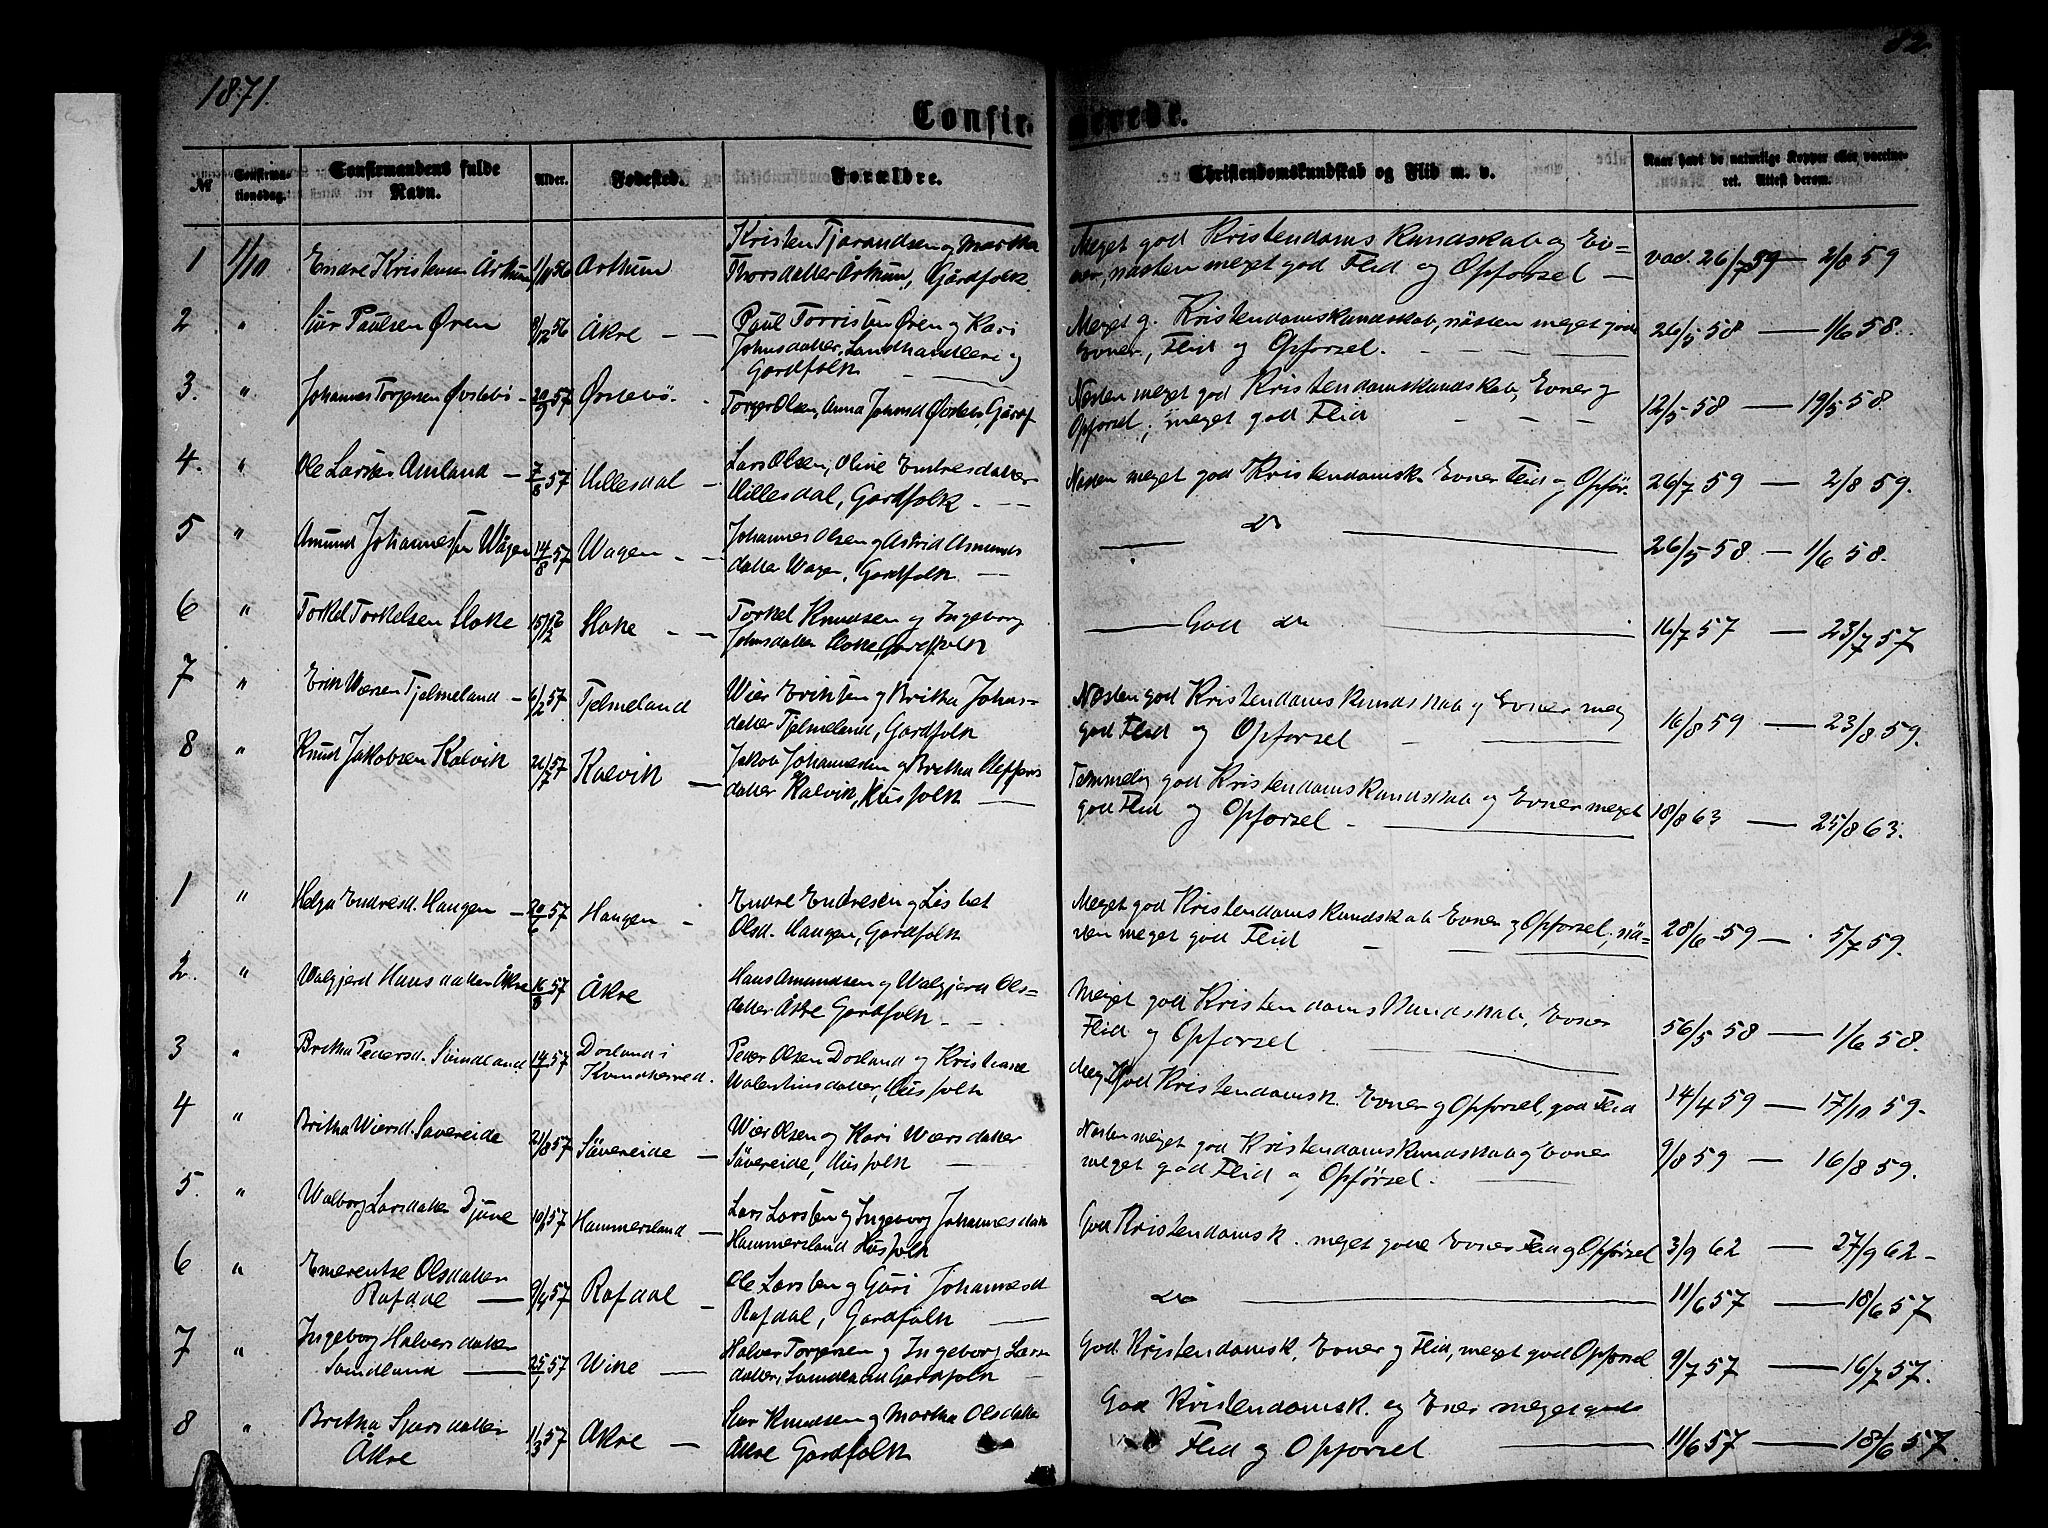 1871.
82
Confirmerede.
№
Confirmationsdag.
Confirmandens fulde Navn.
Alder.
Fødested.
Forældre.
Christendomskundskab og Flid m. v.
Naar havt de naturlige Kopper eller vaccineret. Attest derom.
1 1/10 Endre Kristensen Århum 1/11 56 Århum
Kristen Tjerandsen og Martha
Thorsdatter Århum, Gårdfolk
Meget god Kristendoms Kundskab og Ev-
ner, næsten meget god Flid og Opforsel —
vac. 26/7 59 — 2/8 59
2 " Paulsen Øren 8/12 56 Åkre — —
Paul Torristen Øren og Kari
Johnsdatter, Landhandlere og
Gardfolk
Meget g. Kristendomskundskab, næsten meget gode
Evner, Flid og Opforsel.
26/5 58 — 1/6 58.
3. " Johannes Torgersen Øvstebö - 20/9 57 Øvstebö. -
Torger Olsen, Anna Johnsd Øvstebö, Gårdf
Næsten meget god Kristendomskundskab, Evner og
Opforsel, meget god Flid
12/5 58 — 19/5 58.
4. " Ole Larsen Amland — 7/8 57 Hillesdal -
Lars Olsen, Oline Endresdatter
Hillesdal, Gardfolk. —
Næsten meget god Kristendomsk. Evner Flid og Opför.
26/7 59 — 2/8 59.
5 " Amund Johannessen Wågen 14/8 57 Wagen - -
Johannes Olsen og Astrid Asmunds
datter Wagen, Gardfolk. —
— do —
26/5 58. — 1/6 58.
6 " Torkel Torkelsen Sloke 15/12 56 Sloke - -
Torkel Knudsen og Ingeborg
Johnsdatter Sloke, Gardfolk
— God do —
16/7 57 — 23/7 57
7 " Erik Wiersen Tjelmeland - 6/2 57 Tjelmeland
Wier Eriksen og Britha Johns-
datter Tjelmeland, Gardfolk
Næsten god Kristendoms Kundskab og Evner meg
god Flid og Opforsel
16/8 59 — 23/8 59.
8 " Knud Jakobsen Kalvik 26/7 57 Kalvik —
Jakob Johannesen og Britha Steffens
datter Kalvik, Husfolk —
Temmelig god Kristendoms Kundskab og Evner meget
god Flid og Opforsel -
18/8 63 — 25/8 63.
1 " Helga Endresd. Haugen — 20/6 57 Haugen -
Endre Endresen og Lisbet
Olsd. Haugen, Gardfolk
Meget god Kristendoms Kundskab Evner og Opforsel, næs-
ten meget god Flid
28/6 59 — 5/7 59.
2. " Walgjerd Hansdatter Åkre 16/8 57 Åkre
Hans Amundsen og Walgjerd Ols-
datter Åkre Gardfolk -
Meget god Kristendoms Kundskab, Evner
Flid og Opforsel
56/5 58 — 1/6 58.
3 " Britha Pedersd. Svindland 14/7 57 Dorland i
Kvindherred.
Peder Olsen Dorland og Kristiane
Walentinsdatter, Husfolk
Meg. god Kristendomsk. Evner og Opforsel, god Flid
14/4 59 — 17/10 59.
4 " Britha Wiersd. Sævereide 21/8 57 Sävereide —
Wier Olsen og Kari Wiersdatter
Sävereide, Husfolk —
Næsten meget god Kristendoms Kundskab og Evner
meget god Flid og Opförsel.
9/8 59 — 16/8 59.
5. " Walborg Larsdatter Djuve 10/1 57 Hammersland —
Lars Larsen og Ingeborg Johannesdatt
Hammersland Husfolk
God Kristendomsk. meget gode Evner Flid og Opförsel
3/9 62 — 27/9 62 -
6 " Emerentse Olsdatter
Rafdal — 9/4 57 Rafdal -
Ole Larsen og Guri Johannesd
Rafdal, Gardfolk —
do —
11/6 57 — 18/6 57
7 " Ingeborg Halversdatter
Svindland — 25/1 57 Wike —
Halver Torgersen og Ingeborg Lars
datter, Svindland Gardfolk —
God Kristendomsk. Evner og Flid, meget god Opforsel
9/7 57 — 16/7 57.
8 " Britha Sjursdatter
Åkre 1/3 57 Åkre —
Sjur Knudsen og Martha Olsdatter
Åkre Gardfolk
God Kristendomsk. og Evner meget gode
Flid og Opforsel —
11/6 57 — 18/6 57.